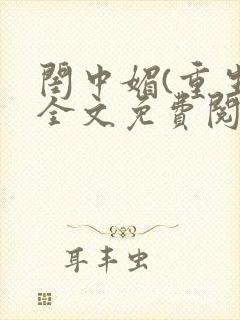 閨中媚(重生
全文免費閱
耳丰虫